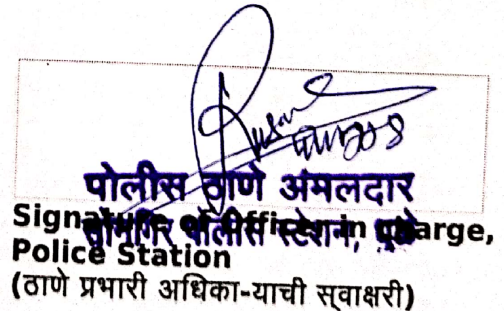 पोलीस ठाणे अंमलदार
पोलीस स्टेशन,
Signature of Officer in charge,
Police Station
(ठाणे प्रभारी अधिका-याची स्वाक्षरी)